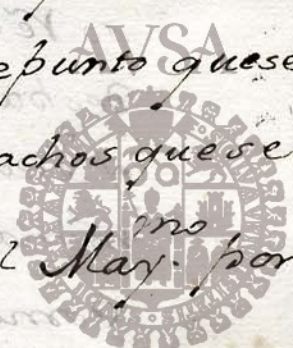 AVSA
epunto quese
achos quese
l May.mo por